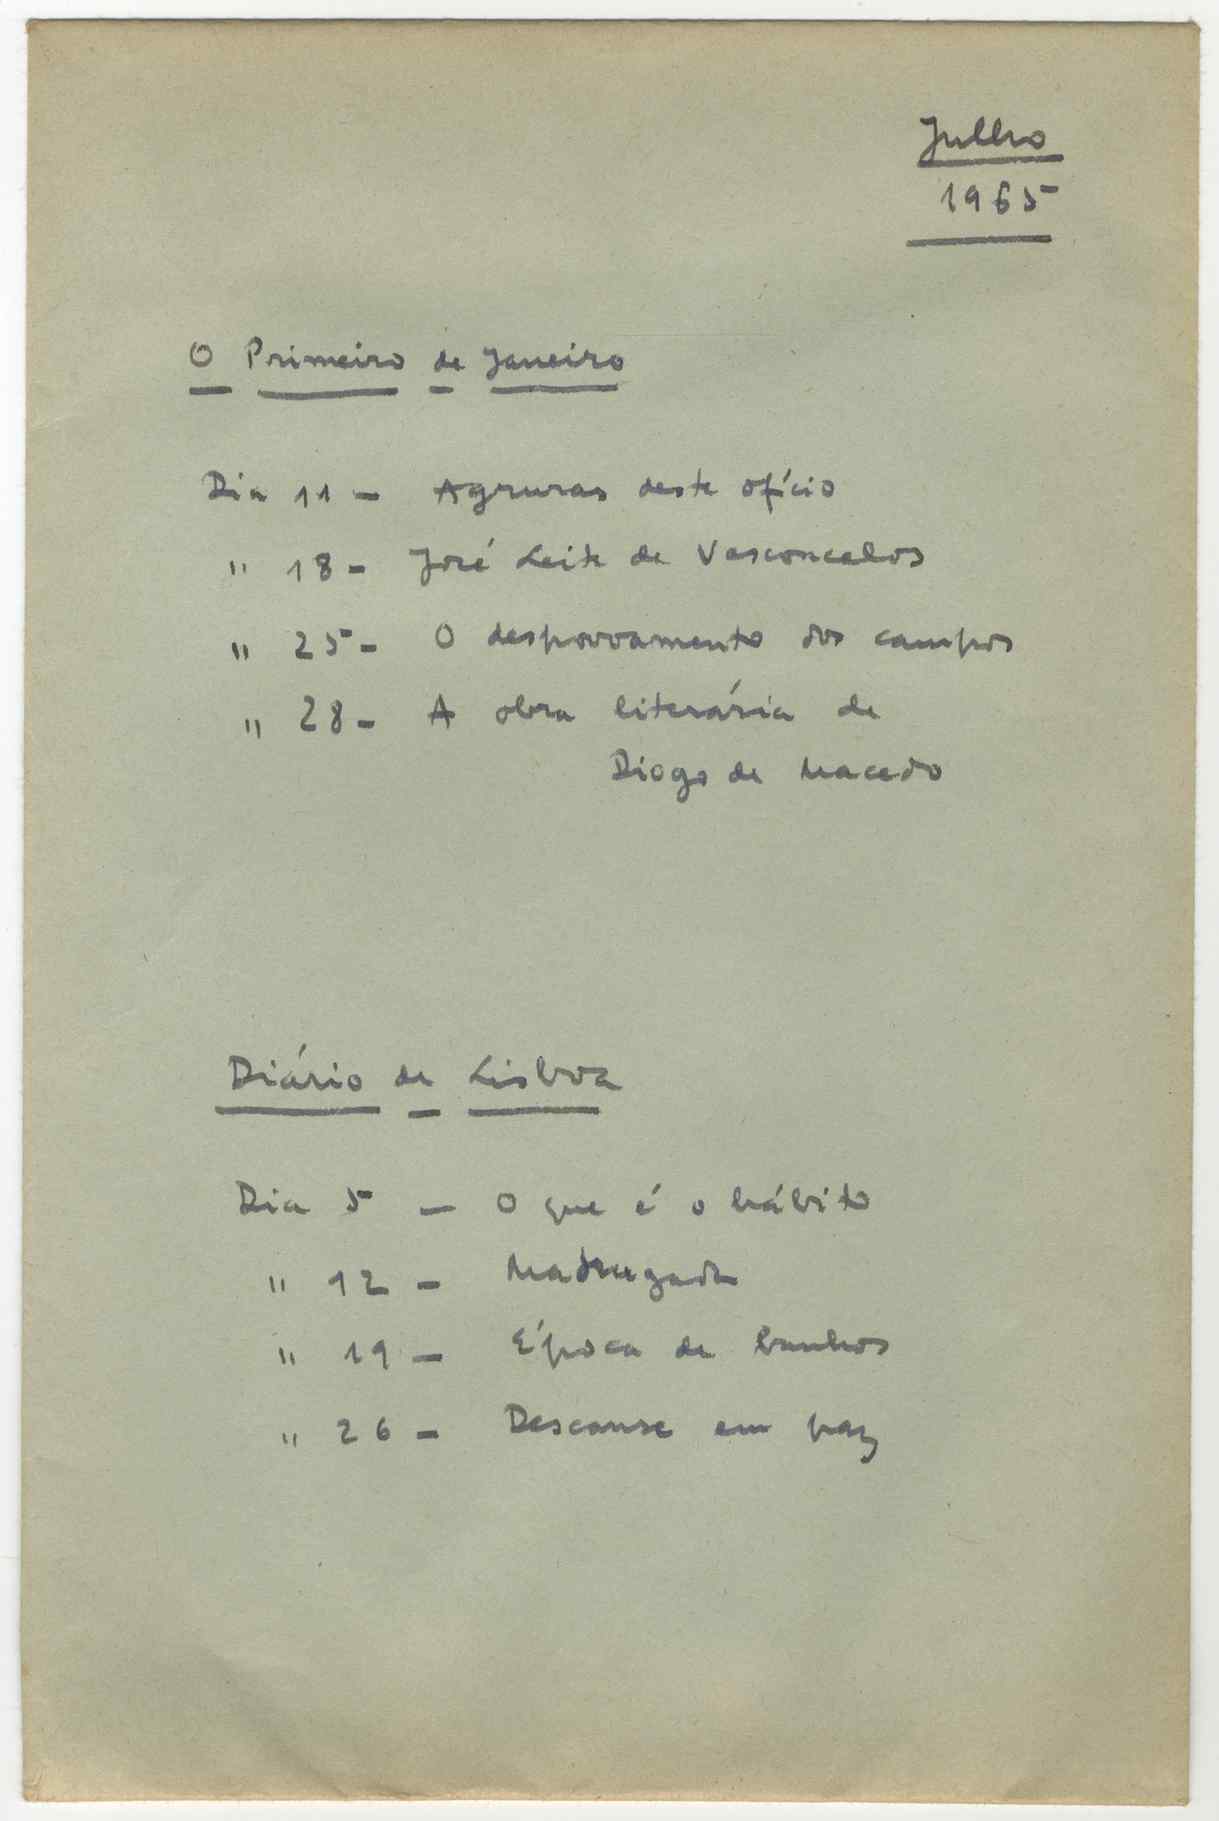 Julho
1965
O Primeiro de Janeiro
Dia 11 - Agruras deste ofício
" 18 - José Leite de Vasconcelos
" 25 - O despovoamento dos campos
" 28 - A obra literária de
Diogo de Macedo
Diário de Lisboa
Dia 5 - O que é o hábito
" 12 - Madrugada
" 19 - Época de banhos
" 26 - Descanse em paz